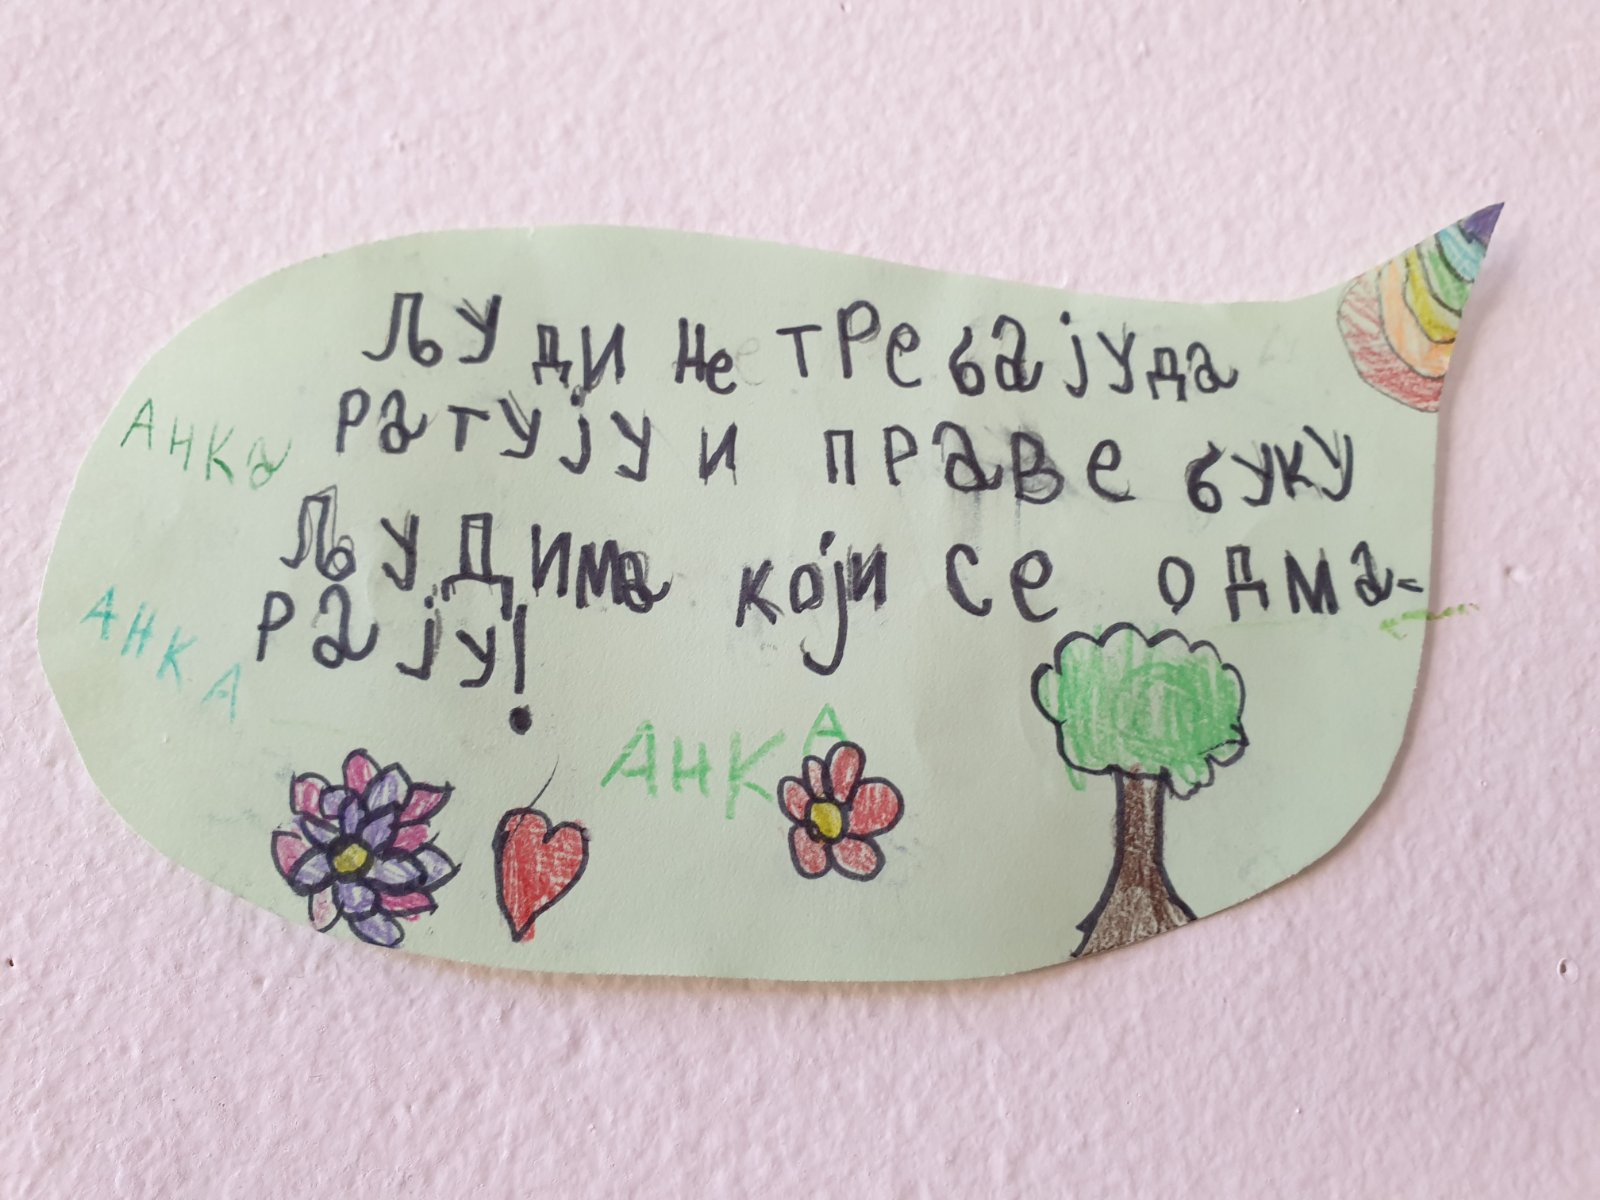 Људи не требају да
ратују и праве буку
људима који се одма-
рају!
Анка
АНКА
АНКА